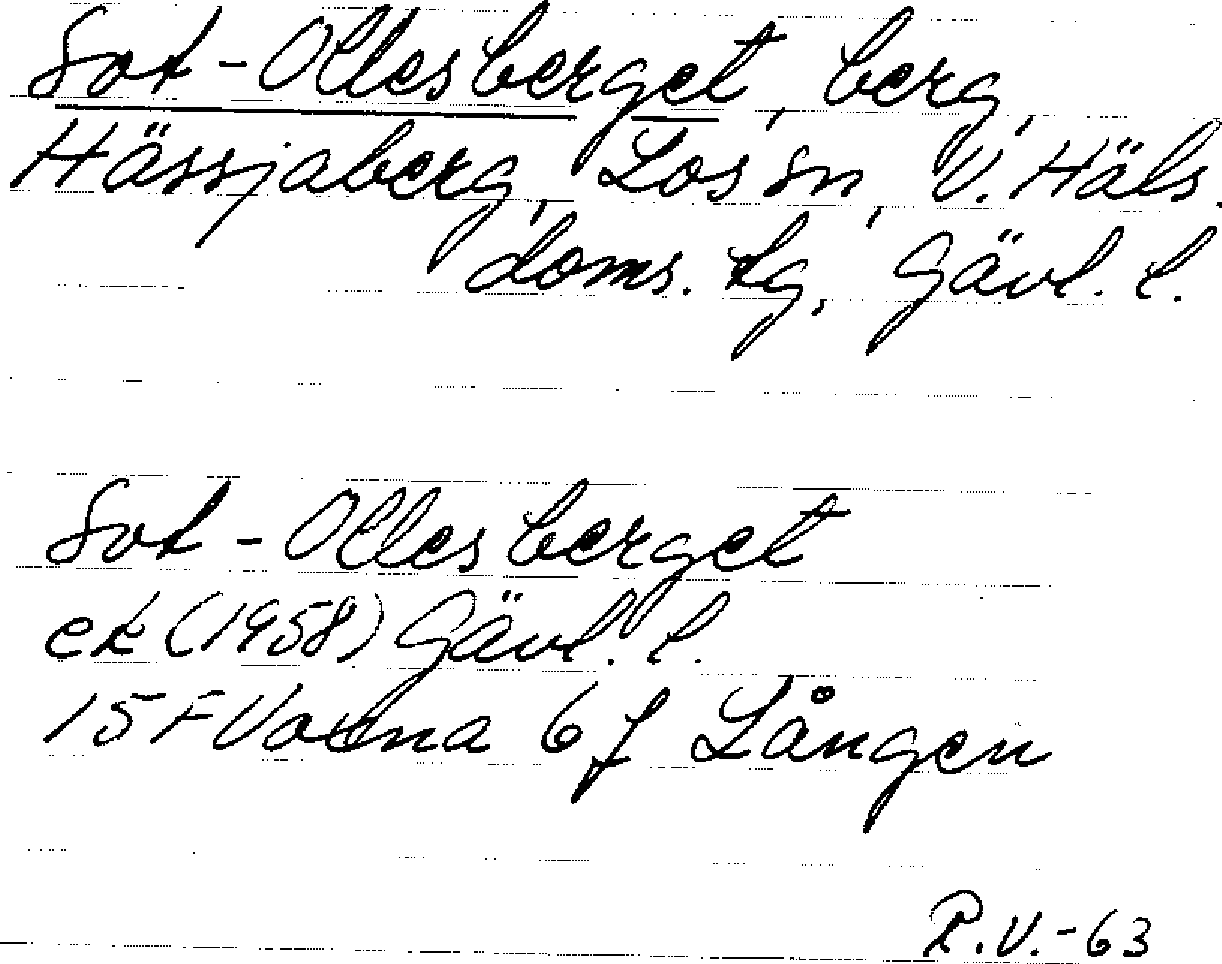 Sot-Ollesberget, berg,
Hässjaberg, Los sn, V. Häls.
doms. tg, Gävl. l.
Sot-Ollesberget
ek (1958) Gävl. l.
15 F Voxna 6 f Lången
R.V.-63